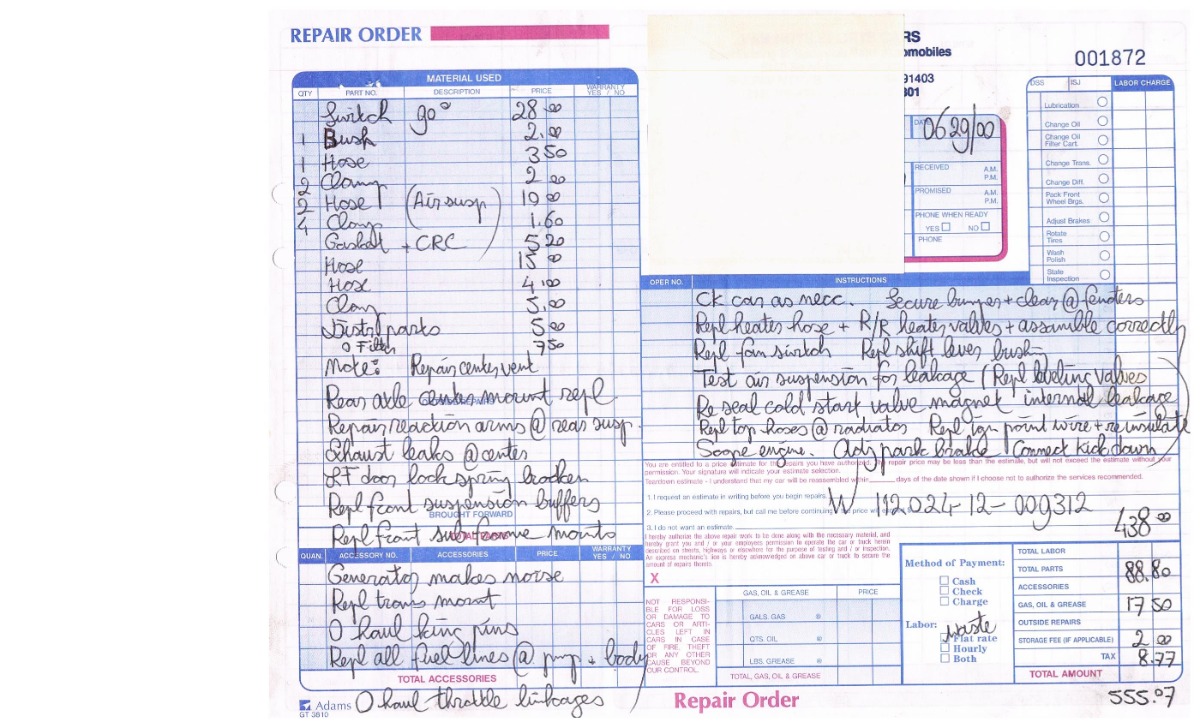 REPAIR ORDER
RS
omobiles
91403
801
001872
MATERIAL USED
QTY PART NO. DESCRIPTION PRICE WARRANTY YES / NO
Switch 90° 28.00
1 Bush 2.00
1 Hose 3 50
2 Clamp 2 00
2 Hose (Air susp) 19 00
4 Clamp 1.60
Gasket + CRC 5 20
Hose 15 00
Hose 4.00
Clamp 5.00
Distr parts 5 00
O Filter 7 50
Note: Repair center vent
Rear axle center mount repl
Repair reaction arms @ rear susp.
Exhaust leaks @ center
LF door lock spring broken
Repl front suspension buffers
BROUGHT FORWARD
Repl front subframe mounts
QUAN. ACCESSORY NO. ACCESSORIES PRICE WARRANTY YES / NO
Generator makes noise
Repl trans mount
O haul king pins
Repl all fuel lines @ pump + body
TOTAL ACCESSORIES
O haul throttle linkages
Adams
GT 3810
DATE 06 29/00
RECEIVED A.M. P.M.
PROMISED A.M. P.M.
PHONE WHEN READY
YES NO
PHONE
DSS ISJ LABOR CHARGE
Lubrication
Change Oil
Change Oil Filter Cart.
Change Trans.
Change Diff.
Pack Front Wheel Brgs.
Adjust Brakes
Rotate Tires
Wash Polish
State Inspection
OPER NO. INSTRUCTIONS
Ck car as necc. Secure bumper + clear @ fenders
Repl heater hose + R/R heater valves + assamble correctly
Repl fan switch Repl shift lever bush
Test air suspension for leakage (Repl leveling valves
Re seal cold start valve magnet internal leakage
Repl top hoses @ radiator Repl ign point wire + reinsulate
Scope engine. Adj park brake Connect kick down)
You are entitled to a price estimate for the repairs you have authorized. The repair price may be less than the estimate, but will not exceed the estimate without your permission. Your signature will indicate your estimate selection.
Teardown estimate - I understand that my car will be reassembled within ____ days of the date shown if I choose not to authorize the services recommended.
1. I request an estimate in writing before you begin repairs.
2. Please proceed with repairs, but call me before continuing
3. I do not want an estimate.
W 112024-12-009312
I hereby authorize the above repair work to be done along with the necessary material, and hereby grant you and / or your employees permission to operate the car or truck herein described on streets, highways or elsewhere for the purpose of testing and / or inspection. An express mechanic's lien is hereby acknowledged on above car or truck to secure the amount of repairs thereto.
X
NOT RESPONSIBLE FOR LOSS OR DAMAGE TO CARS OR ARTICLES LEFT IN CARS IN CASE OF FIRE, THEFT OR ANY OTHER CAUSE BEYOND OUR CONTROL.
GAS, OIL & GREASE PRICE
GALS. GAS @
QTS. OIL @
LBS. GREASE @
TOTAL, GAS, OIL & GREASE
Method of Payment:
Cash
Check
Charge
Labor: waste
Flat rate
Hourly
Both
TOTAL LABOR 438 00
TOTAL PARTS 88.80
ACCESSORIES
GAS, OIL & GREASE 17 50
OUTSIDE REPAIRS
STORAGE FEE (IF APPLICABLE) 2 00
TAX 8.77
TOTAL AMOUNT 555.07
Repair Order